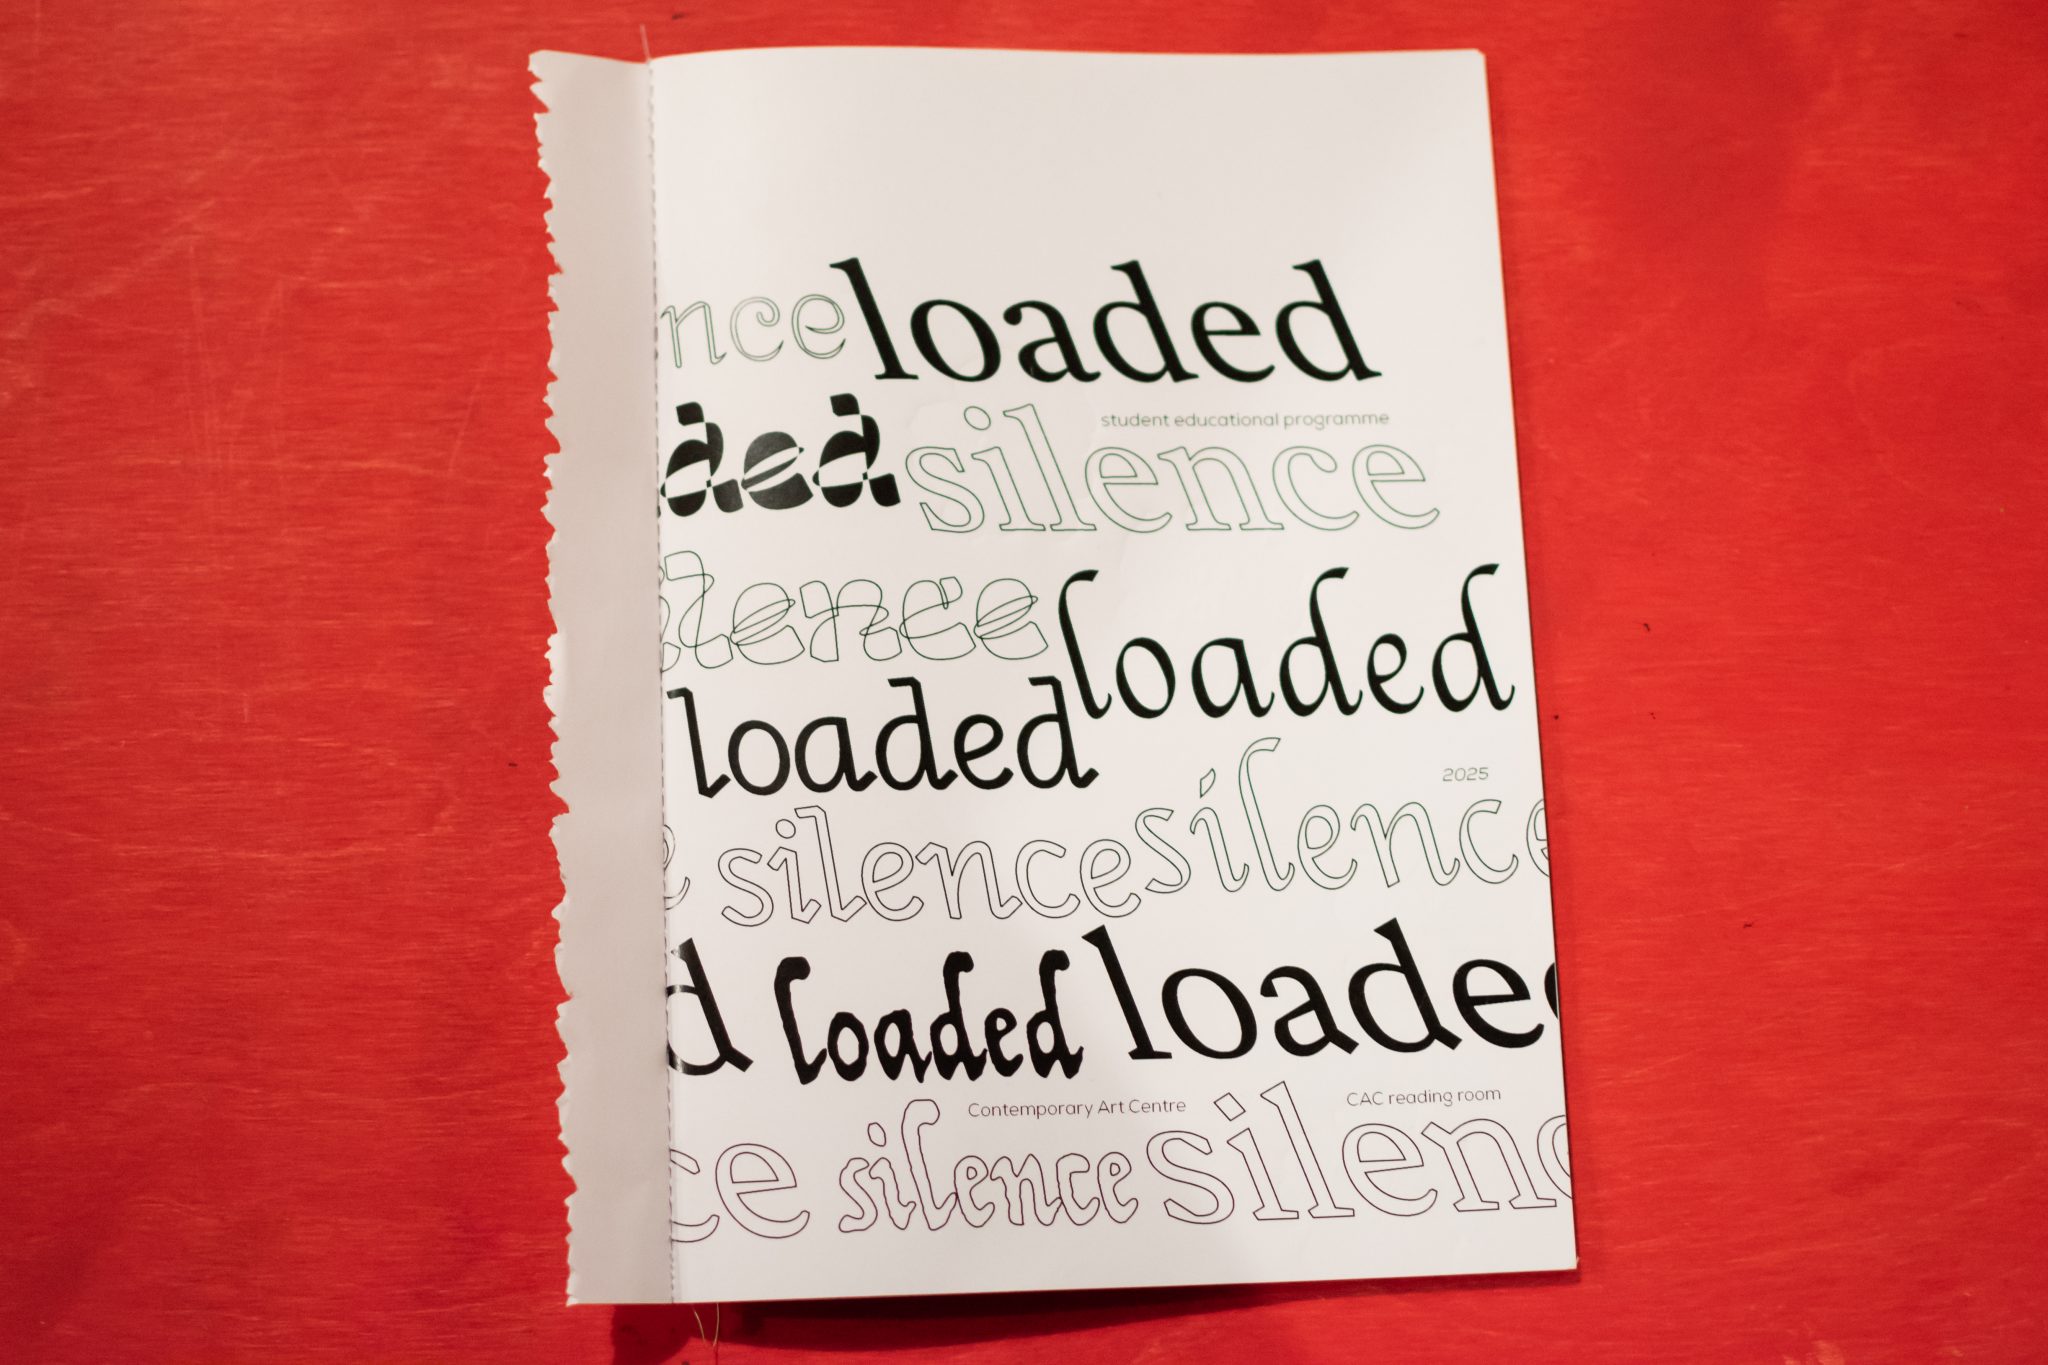 nce loaded
student educational programme
ded silence
ilence loaded
loaded
2025
e silence silence
d loaded loaded
Contemporary Art Centre CAC reading room
ce silence silenc